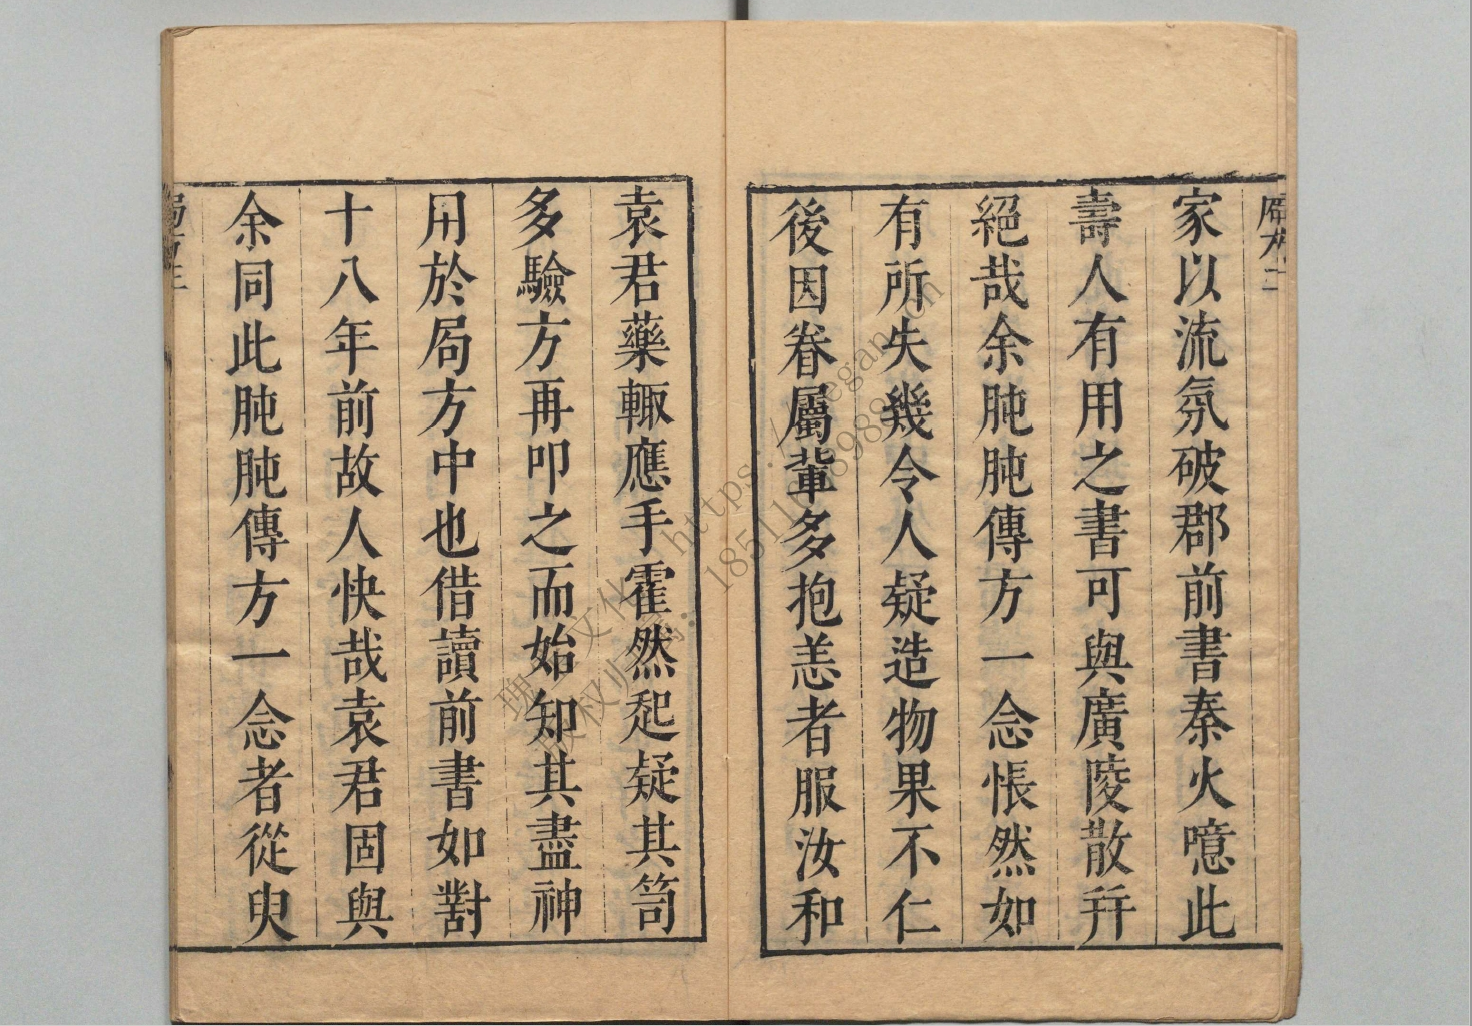 家以流氛破郡前書秦火噫此
壽人有用之書可與廣陵散幷
絕哉余肫肫傳方一念悵然如
有所失幾令人疑造物果不仁
後因眷屬輩多抱恙者服汝和
袁君藥輙應手霍然起疑其笥
多驗方再叩之而始知其盡神
用於局方中也借讀前書如對
十八年前故人快哉袁君固與
余同此肫肫傳方一念者從臾